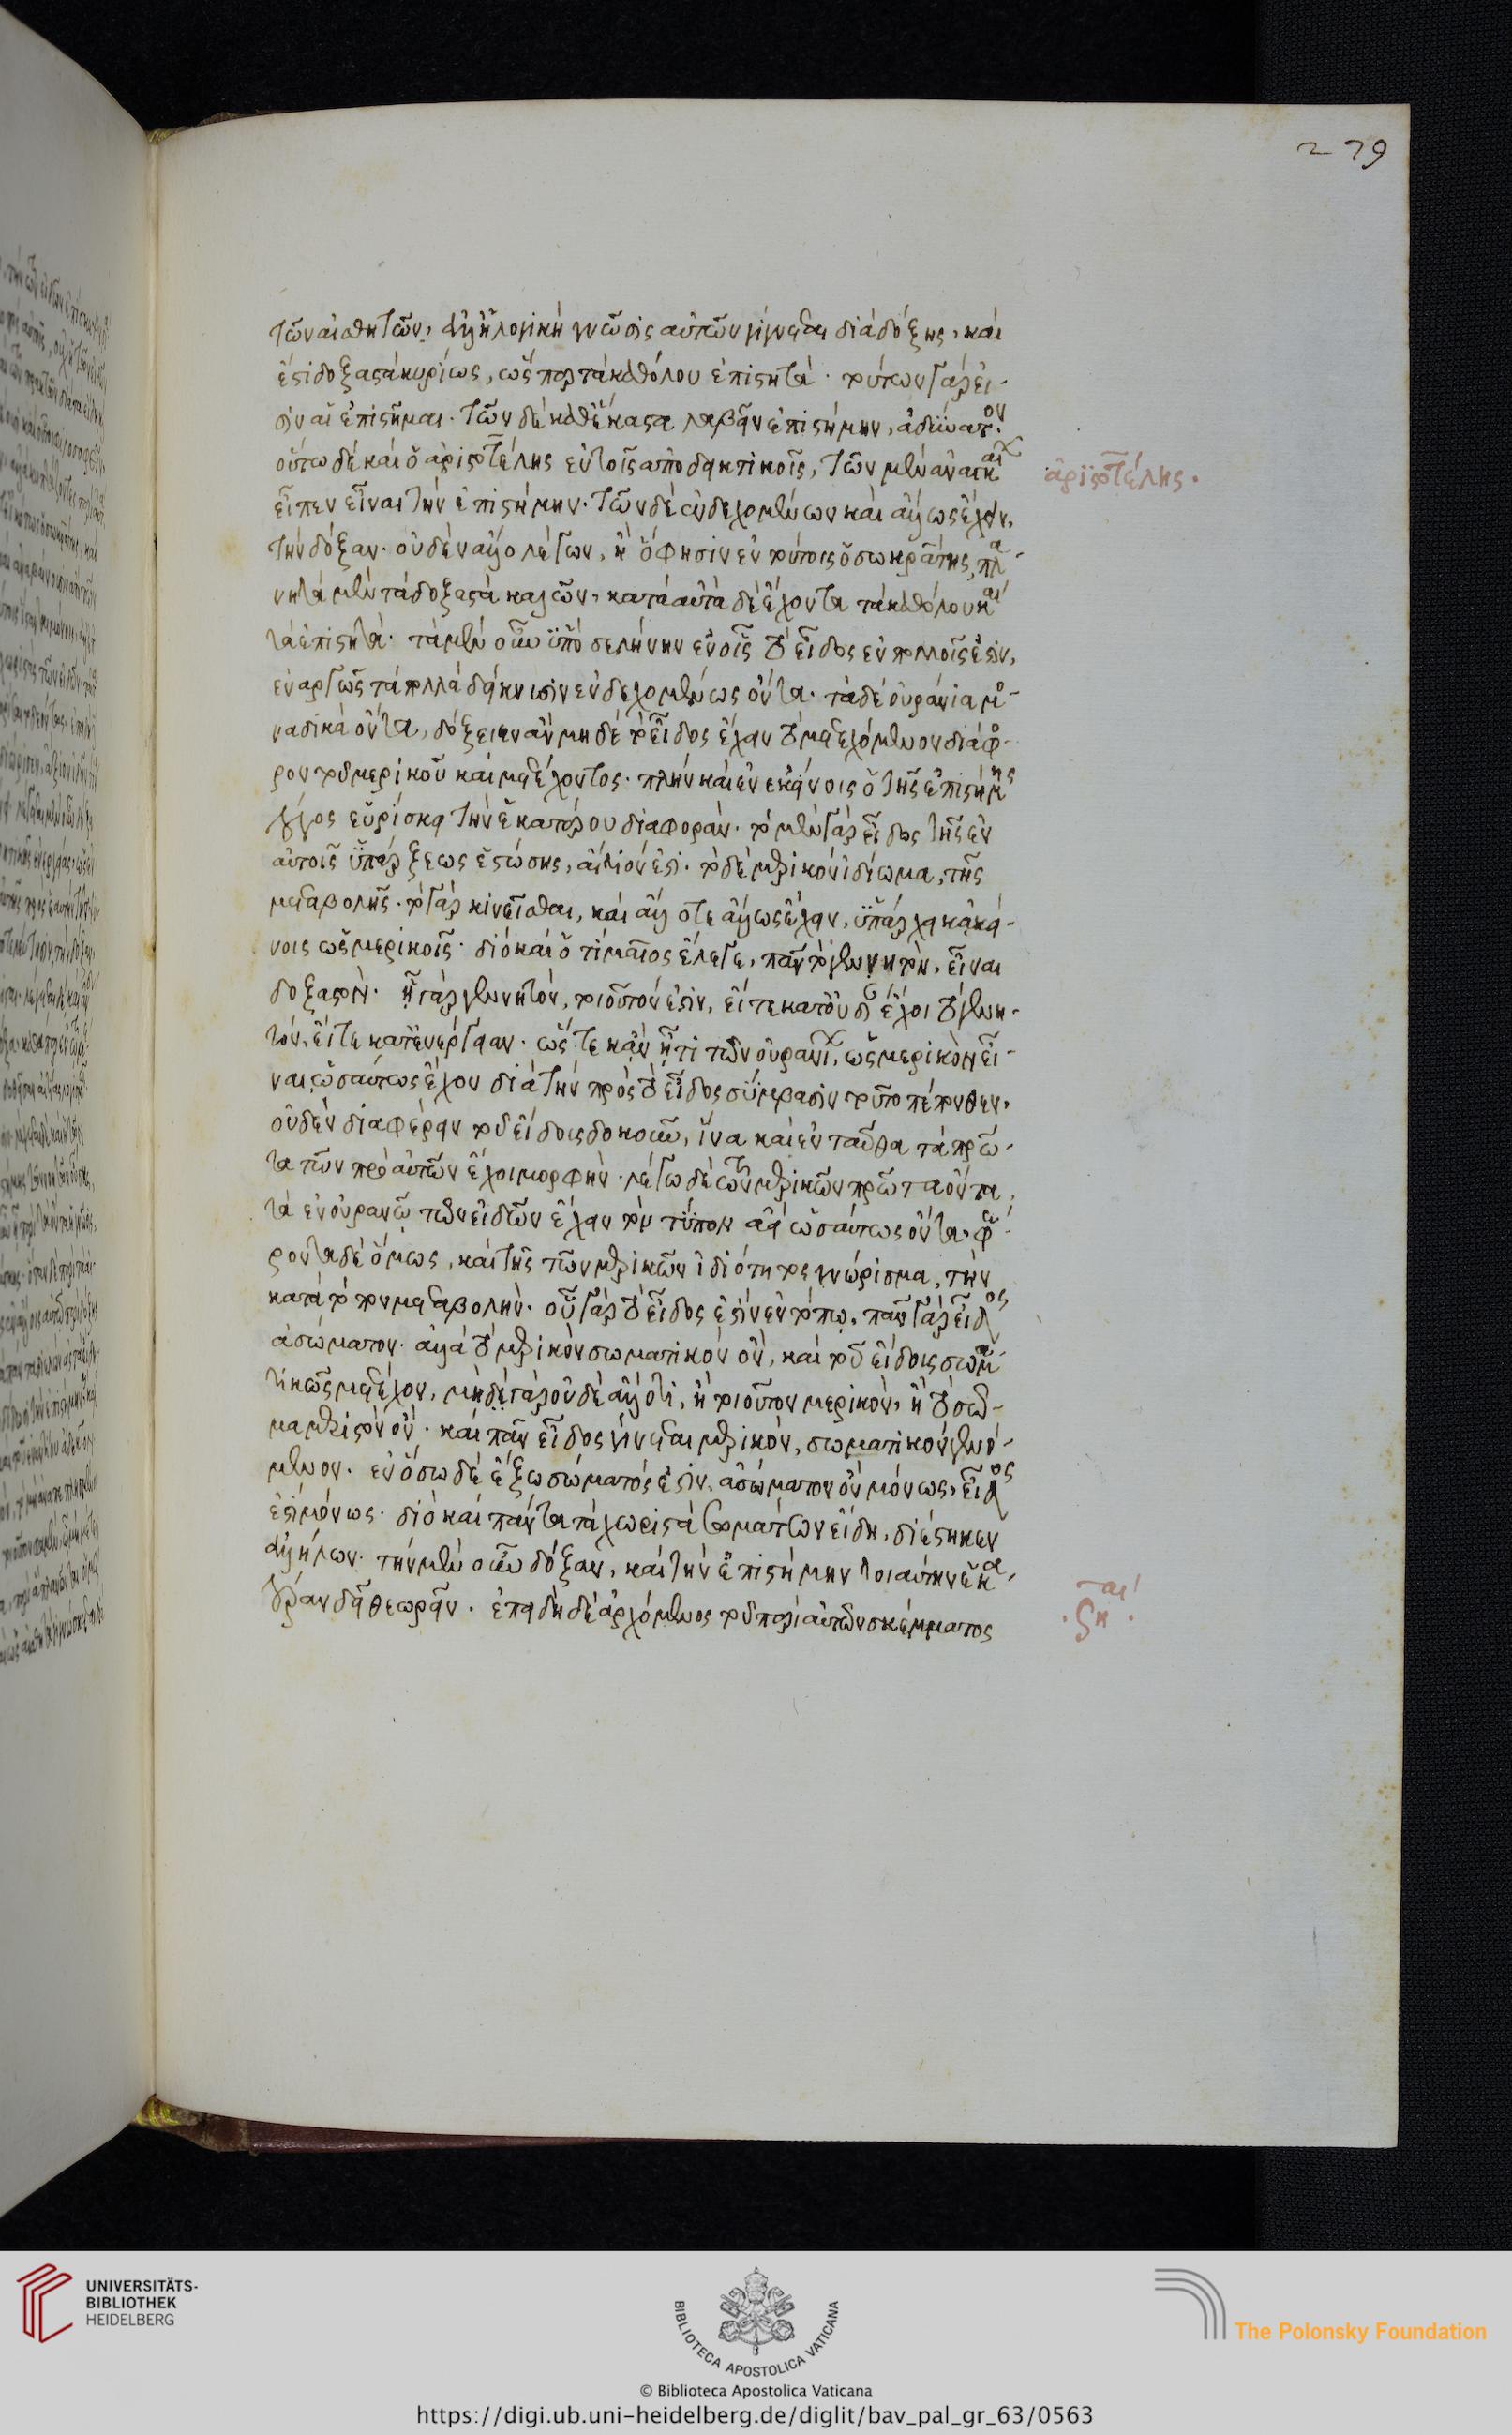 279
τῶν αἰσθητῶν, ἀλλ' ἡ λογικὴ γνῶσις αὐτῶν γίγνεται διὰ δόξης, καὶ
ἔστι δοξαστὰ κυρίως, ὥσπερ τὰ καθόλου ἐπιστητά. τούτων γάρ εἰ-
σιν αἱ ἐπιστῆμαι. τῶν δὲ καθέκαστα λαβεῖν ἐπιστήμην, ἀδύνατον.
οὕτω δὲ καὶ ὁ ἀριστοτέλης ἐν τοῖς ἀποδεικτικοῖς, τῶν μὲν ἀναγκαίων
εἶπεν εἶναι τὴν ἐπιστήμην. τῶν δὲ ἐνδεχομένων καὶ ἄλλως ἔχειν,
τὴν δόξαν. οὐδὲν ἄλλο λέγων, ἢ ὅ φησιν ἐν τούτοις ὁ σωκράτης, πλα-
νητὰ μὲν τὰ δοξαστὰ καλῶν, κατὰ αὐτὰ δὲ ἔχοντα τὰ καθόλου καὶ
τὰ ἐπιστητά. τὰ μὲν οὖν ὑπὸ σελήνην ἐν οἷς τὸ εἶδος ἐν πολλοῖς ἐστιν,
ἐναργῶς τὰ πολλὰ δείκνυσιν ἐνδεχομένως ὄντα. τὰ δὲ οὐράνια μο-
ναδικὰ ὄντα, δόξειεν ἂν μηδὲ τὸ εἶδος ἔχειν τὸ μετεχόμενον διάφο-
ρον τοῦ μερικοῦ καὶ μετέχοντος. πλὴν καὶ ἐν ἐκείνοις ὁ τῆς ἐπιστήμης
λόγος εὑρίσκει τὴν ἑκατέρου διαφοράν. τὸ μὲν γὰρ εἶδος τῆς ἐν
αὐτοῖς ὑπάρξεως ἑστώσης, αἴτιόν ἐστι. τὸ δὲ μερικὸν ἰδίωμα, τῆς
μεταβολῆς. τὸ γὰρ κινεῖσθαι, καὶ ἄλλοτε ἄλλως ἔχειν, ὑπάρχει κἀκεί-
νοις ὡς μερικοῖς. διὸ καὶ ὁ τίμαιος ἔλεγε, πᾶν τὸ γενητὸν, εἶναι
δοξαστόν. ᾗ γὰρ γενητὸν, τοιοῦτόν ἐστιν, εἴτε κατ' οὐσίαν ἔχοι τὸ γενη-
τόν, εἴτε κατ' ἐνέργειαν. ὥστε κἂν ᾖ τι τῶν οὐρανίων, ὡς μερικὸν εἶ-
ναι ὡσαύτως ἔχον διὰ τὴν πρὸς τὸ εἶδος σύμβασιν τοῦτο πέπονθεν,
οὐδὲν διαφέρειν τοῦ εἴδους δοκοῦν, ἵνα καὶ ἐνταῦθα τὰ πρῶ-
τα τῶν πρὸ αὐτῶν ἔχοι μορφήν. λέγω δὲ τῶν μερικῶν πρῶτα ὄντα,
τὰ ἐν οὐρανῷ τῶν εἰδῶν ἔχειν τὸν τύπον ἀεὶ ὡσαύτως ὄντα. φέ-
ροντα δὲ ὅμως, καὶ τῆς τῶν μερικῶν ἰδιότητος γνώρισμα, τὴν
κατὰ τόπον μεταβολήν. οὐ γὰρ τὸ εἶδος ἐστὶν ἐν τόπῳ. πᾶν γὰρ εἶδος
ἀσώματον. ἀλλὰ τὸ μερικὸν σωματικὸν ὂν, καὶ τοῦ εἴδους σωμα-
τικῶς μετέχον, μηδὲ γὰρ οὐδὲ ἄλλο τι, ἢ τοιοῦτον μερικὸν, ἢ τὸ σῶ-
μα μεριστὸν ὄν. καὶ πᾶν εἶδος γίνεται μερικὸν, σωματικὸν γενό-
μενον. ἐν ὅσῳ δὲ ἔξω σώματός ἐστιν, ἀσώματον ὂν μόνως, εἶδος
ἐστὶ μόνως. διὸ καὶ πάντα τὰ χωριστὰ σωμάτων εἴδη, διέστηκεν
ἀλλήλων. τὴν μὲν οὖν δόξαν, καὶ τὴν ἐπιστήμην τοιαύτην ἑκα-
τέραν δεῖ θεωρεῖν. ἐπειδὴ δὲ ἀρχόμενος τοῦ περὶ αὐτῶν σκέμματος
ἀριστοτέλης.
UNIVERSITÄTS-
BIBLIOTHEK
HEIDELBERG
BIBLIOTECA APOSTOLICA VATICANA
The Polonsky Foundation
© Biblioteca Apostolica Vaticana
https://digi.ub.uni-heidelberg.de/diglit/bav_pal_gr_63/0563